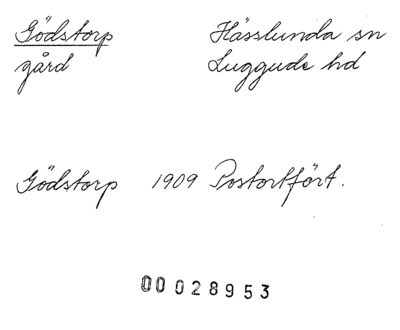 Gödstorp Hässlunda sn
gård Luggude hd
Gödstorp 1909 Postortfört.
00028953